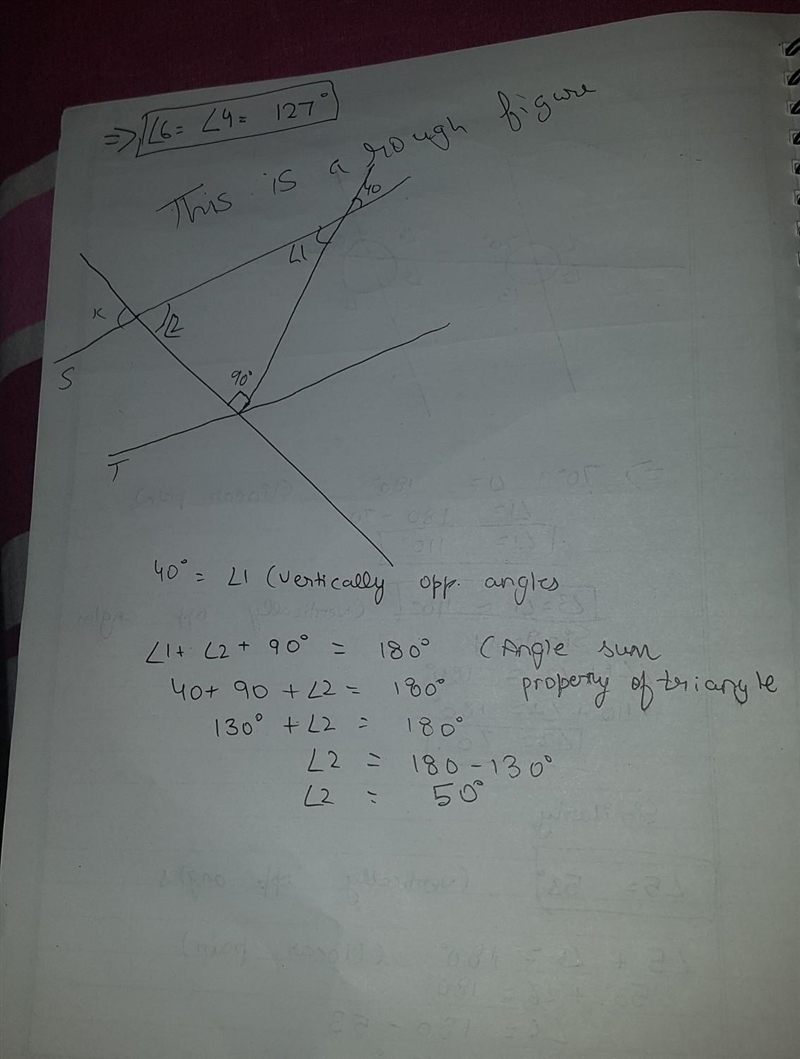 ⇒ ∠6 = ∠4 = 127°
This is a rough figure
40
∠1
K
∠2
S
90°
T
40° = ∠1 (vertically opp. angles
∠1 + ∠2 + 90° = 180° (Angle sum
40 + 90 + ∠2 = 180° property of triangle
130° + ∠2 = 180°
∠2 = 180 - 130°
∠2 = 50°